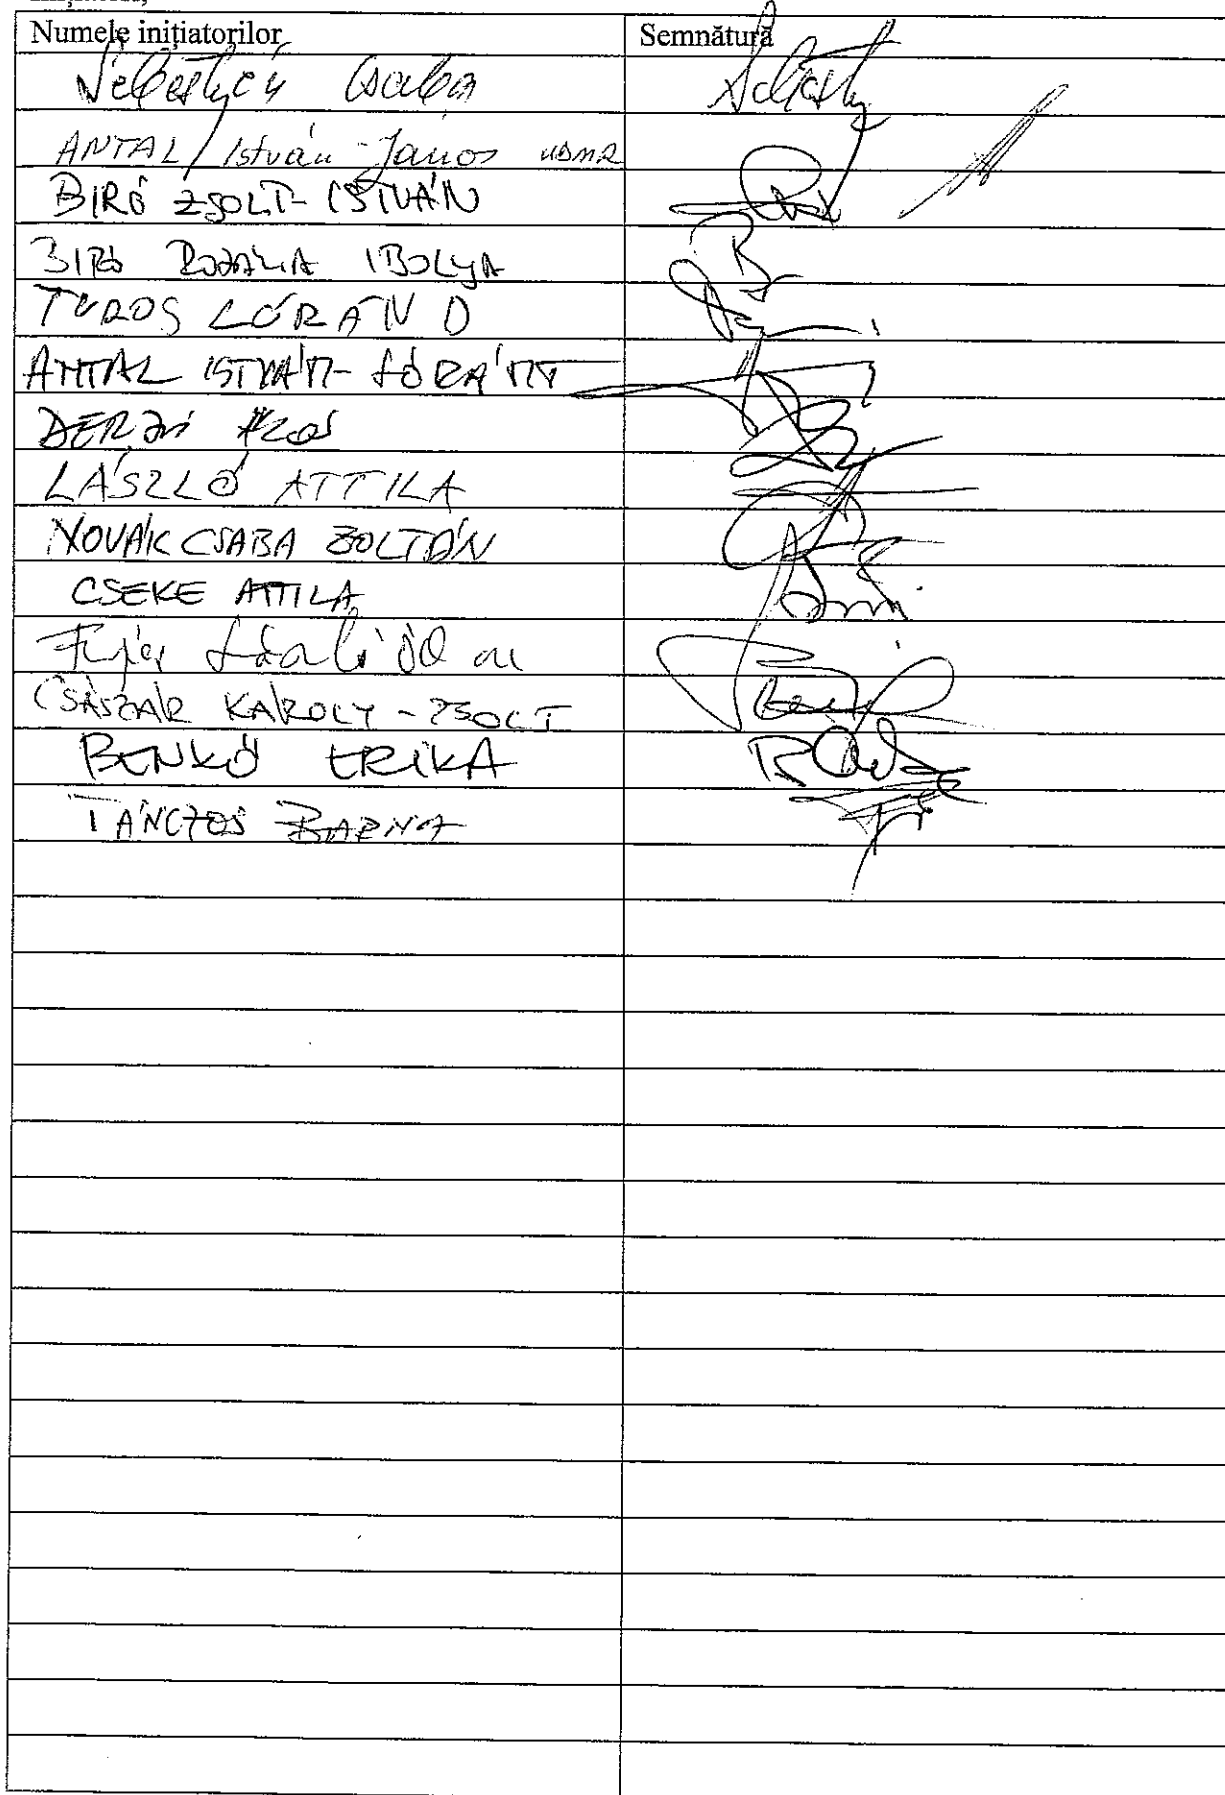 Numele inițiatorilor Semnătură
Sebestyén Csaba
ANTAL István-János UDMR
BIRÓ ZSOLT-ISTVÁN
BIRÓ ROZALIA IBOLYA
TUROS LÓRÁND
ANTAL ISTVÁN-LÓRÁNT
DERZSI ÁKOS
LÁSZLÓ ATTILA
NOVÁK CSABA ZOLTÁN
CSEKE ATTILA
Fejér László Ödön
CSÁSZÁR KÁROLY-ZSOLT
BENKŐ ERIKA
TÁNCZOS BARNA